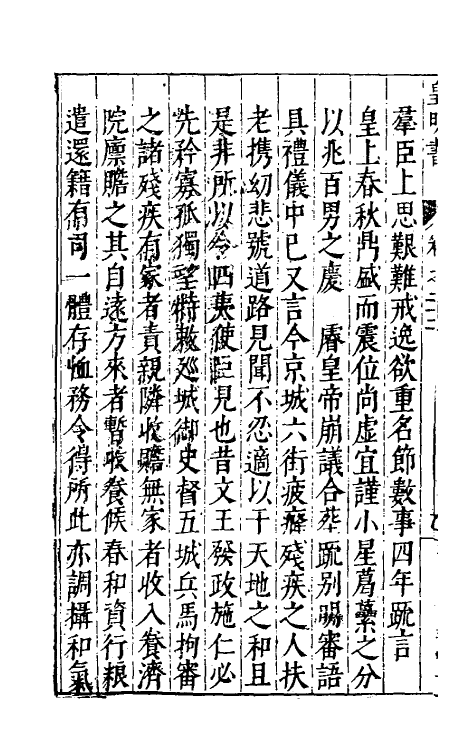 皇明書　卷之二十二
羣臣上思艱難戒逸欲重名節數事四年䟽言
皇上春秋鼎盛而震位尚虛宜謹小星葛藟之分
以兆百男之慶　睿皇帝崩議合葬䟽別賜審語
具禮儀中已又言今京城六街疲癃殘疾之人扶
老携幼悲號道路見聞不忍適以干天地之和且
是非所以令四夷使臣見也昔文王發政施仁必
先矜寡孤獨望特敕廵城御史督五城兵馬拘審
之諸殘疾有家者責親隣收贍無家者收入養濟
院廩贍之其自遠方來者暫收養候春和資行粮
遣還籍有司一體存恤務令得所此亦調攝和氣